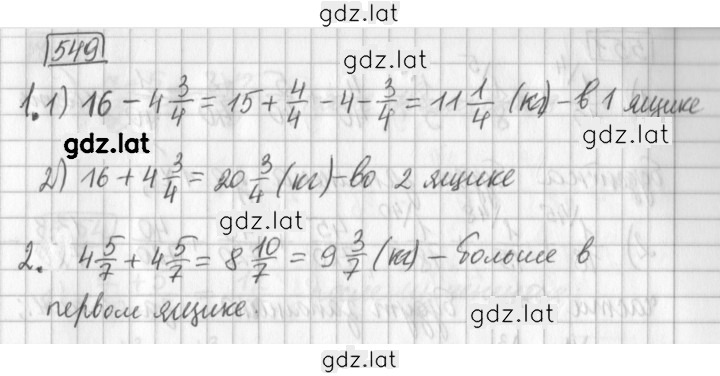 gdz.lat
549
gdz.lat
1. 1) 16 - 4 3/4 = 15 + 4/4 - 4 - 3/4 = 11 1/4 (кг) - в 1 ящике
gdz.lat
gdz.lat
2) 16 + 4 3/4 = 20 3/4 (кг) - во 2 ящике
gdz.lat
2. 4 5/7 + 4 5/7 = 8 10/7 = 9 3/7 (кг) - больше в
первом ящике.
gdz.lat
gdz.lat